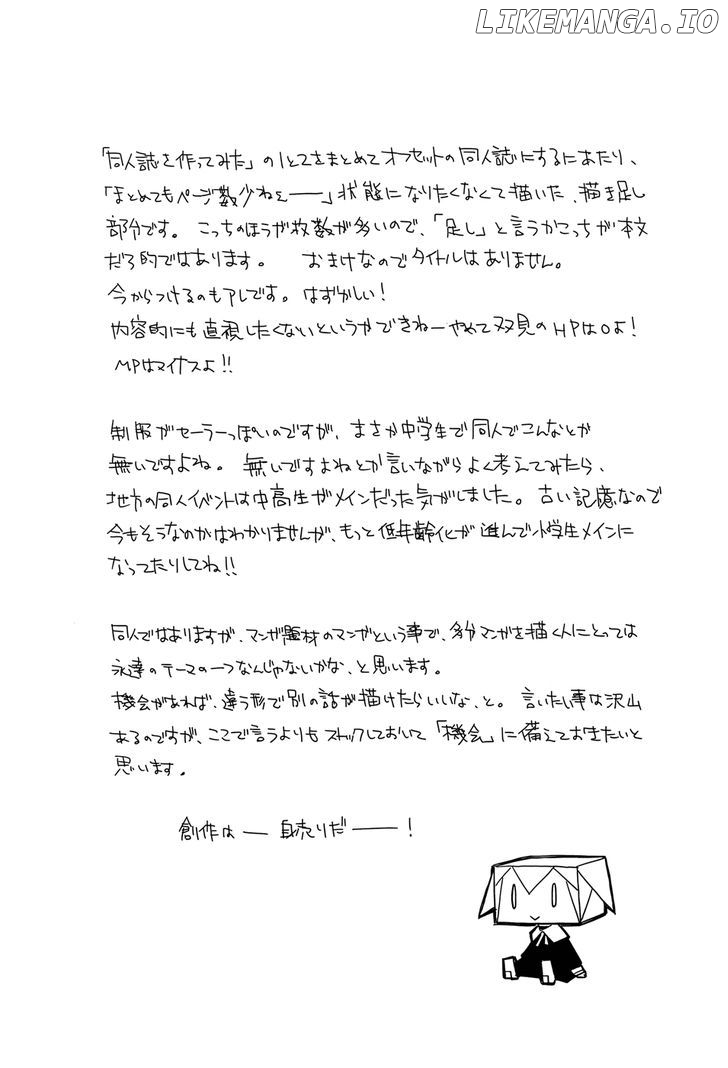 LIKEMANGA.IO
「同人誌を作ってみた」の1と2をまとめてオフセットの同人誌にするにあたり、
「まとめてもページ数少ねぇ――」状態になりたくなくて描いた、描き足し
部分です。 こっちのほうが枚数が多いので、「足し」と言うかこっちが本文
だろ的ではあります。 おまけなのでタイトルはありません。
今からつけるのもアレです。はずかしい!
内容的にも直視したくないというかできねーやめて双見のHPは0よ!
MPはマイナスよ!!
制服がセーラーっぽいのですが、まさか中学生で同人でこんなとか
無いですよね。 無いですよねとか言いながらよく考えてみたら、
地方の同人イベントは中高生がメインだった気がしました。古い記憶なので
今もそうなのかはわかりませんが、もっと低年齢化が進んで小学生メインに
なってたりしてね!!
同人ではありますが、マンガ題材のマンガという事で、多分マンガを描く人にとっては
永遠のテーマの一つなんじゃないかな、と思います。
機会があれば、違う形で別の話が描けたらいいな、と。言いたい事は沢山
あるのですが、ここで言うよりもストックしておいて「機会」に備えておきたいと
思います。
創作は――身売りだ――!